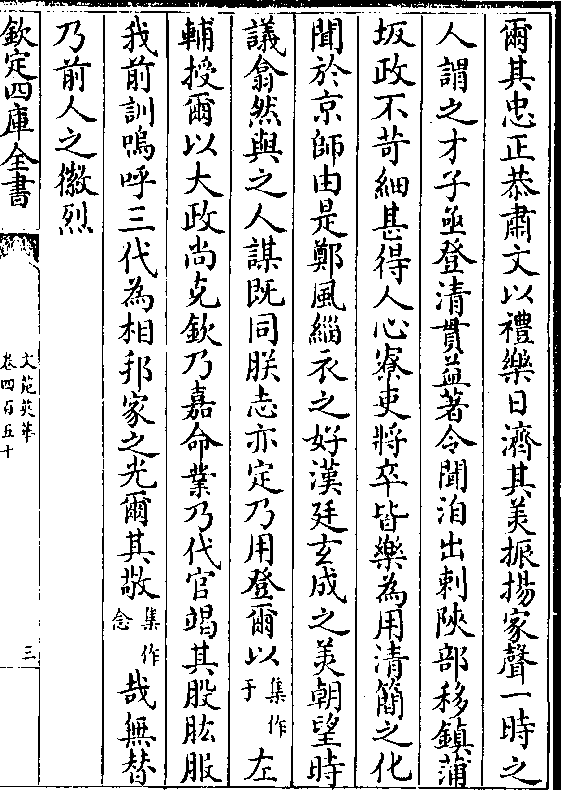 爾其忠正恭肅文以禮樂日濟其美振揚家聲一時之
人謂之才子亟登清貫益著令聞洎出刺陜部移鎮蒲
坂政不苛細甚得人心寮吏將卒皆樂為用清簡之化
聞於京師由是鄭風緇衣之好漢廷玄成之美朝望時
議翕然與之人謀既同朕志亦定乃用登爾以集作于左
輔授爾以大政尚克欽乃嘉命業乃代官竭其股肱服
我前訓嗚呼三代為相邦家之光爾其敬集作念哉無替
乃前人之徽烈
欽定四庫全書
文苑英華
卷四百五十
三